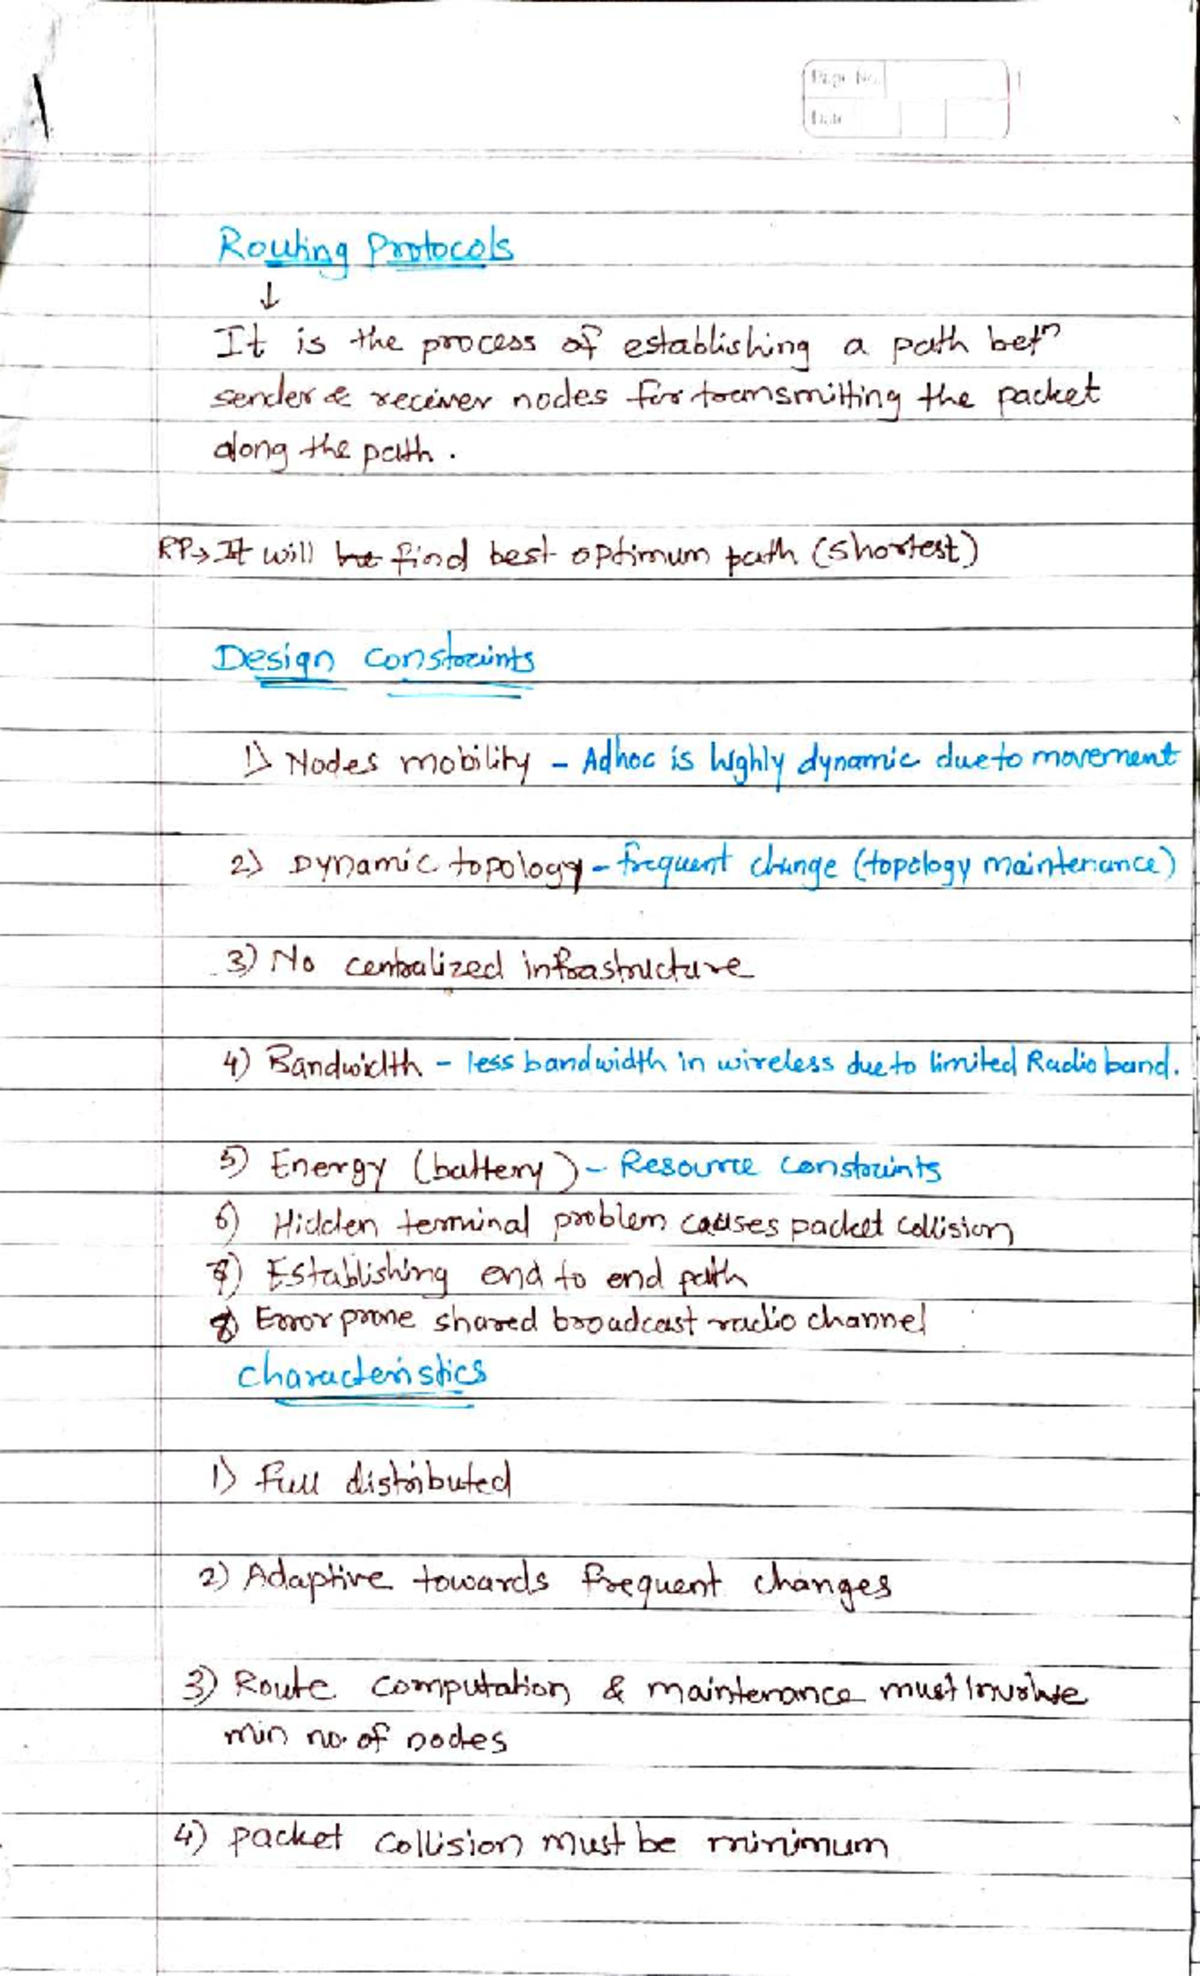 Page No.
Date
Routing Protocols
↓
It is the process of establishing a path betn
sender & reciever nodes for transmitting the packet
along the path.
RP→ It will be find best optimum path (shortest)
Design constraints
1) Nodes mobility - Adhoc is highly dynamic due to movement
2) Dynamic topology - frequent change (topology maintenance)
3) No centralized infrastructure
4) Bandwidth - less bandwidth in wireless due to limited Radio band.
5) Energy (battery) - Resource constraints
6) Hidden terminal problem causes packet collision
7) Establishing end to end path
8) Error prone shared broadcast radio channel
characteristics
1) Full distributed
2) Adaptive towards frequent changes
3) Route computation & maintenance must involve
min no. of nodes
4) packet collision must be minimum